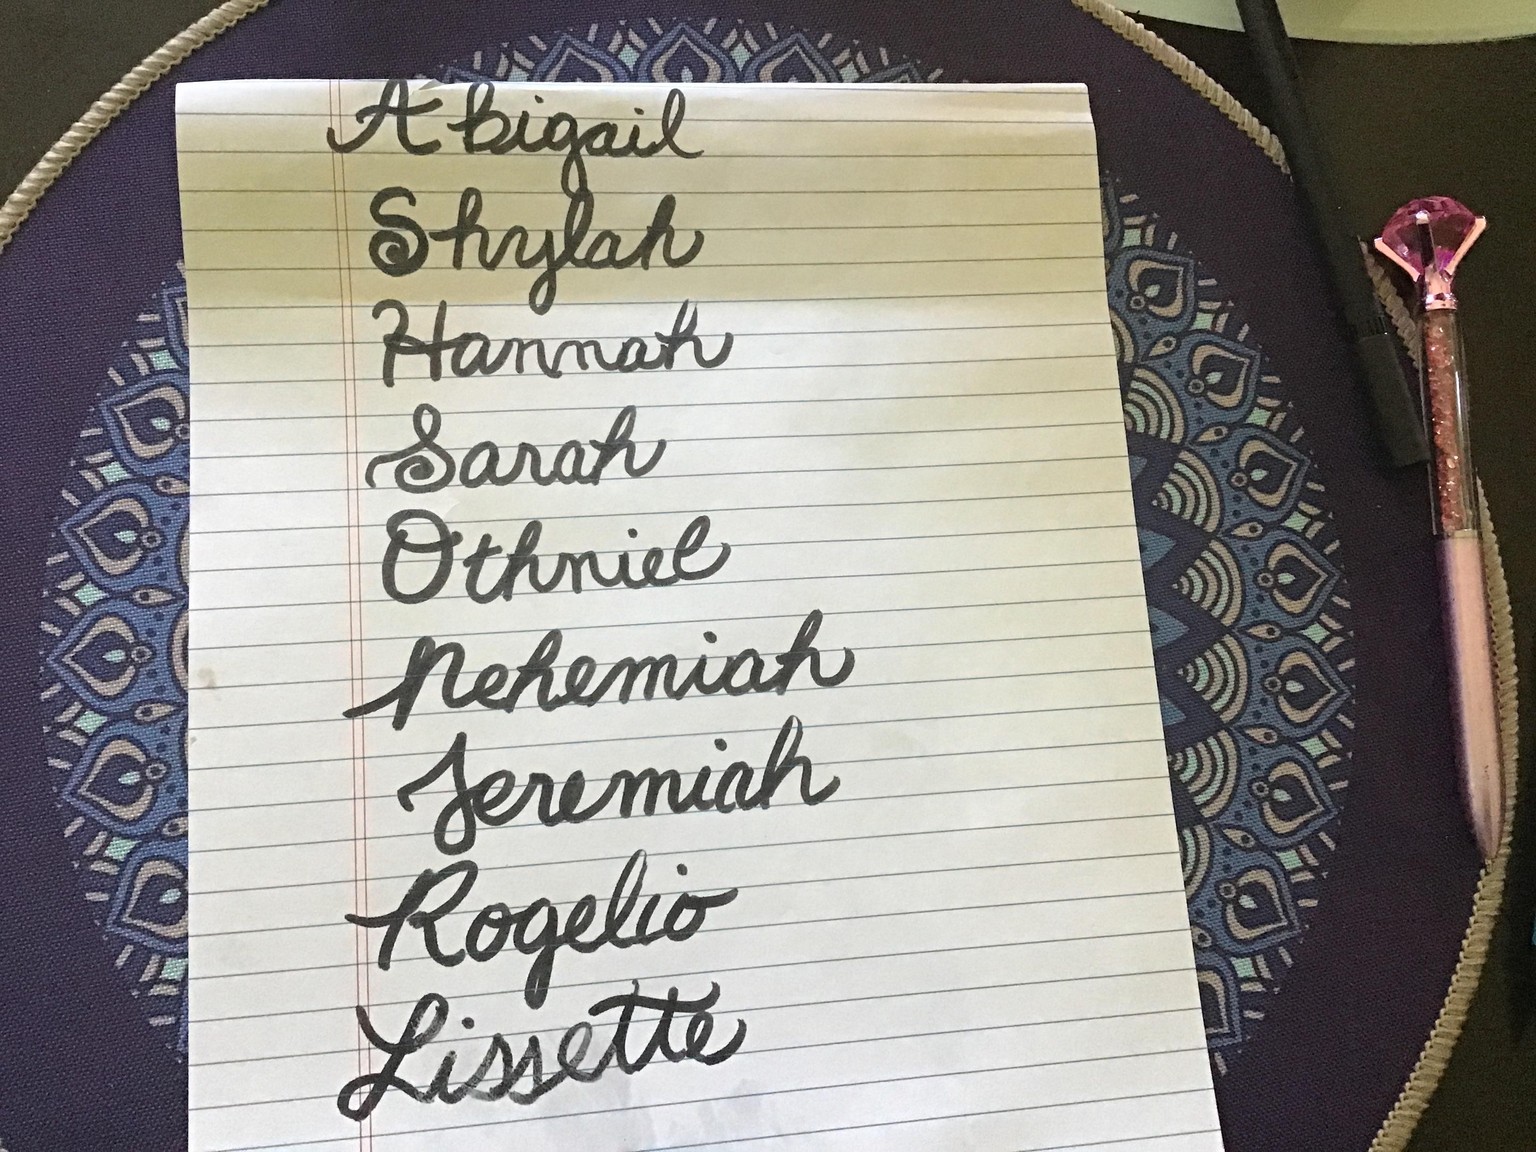 Abigail
Shylah
Hannah
Sarah
Othniel
Nehemiah
Jeremiah
Rogelio
Lissette